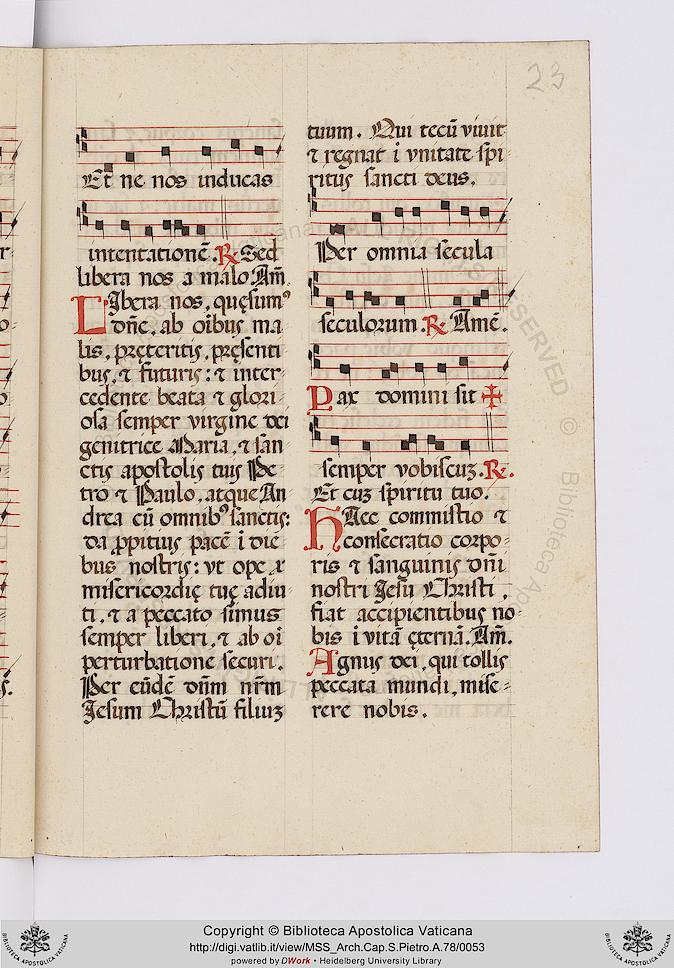 23
Et ne nos inducas
intentationē. ℟. Sed
libera nos a malo. Am̄.
LIbera nos, quęsumꝰ
dn̄e, ab oībus ma
lis, pręteritis, pręsenti
bus, ⁊ futuris: ⁊ inter⸗
cedente beata ⁊ glori⸗
osa semper virgine dei
genitrice Maria, ⁊ san
ctis apostolis tuis Pe⸗
tro ⁊ Paulo, atque An
drea cū omnibꝰ sanctis:
da ꝓpitius pacē i die
bus nostris: vt ope
misericordię tuę adiu
ti, ⁊ a peccato simus
semper liberi, ⁊ ab oi
perturbatione securi.
Per eūdē dn̄m nr̄m
Jesum Christū filiuꝫ
tuum. Qui tecū viuit
⁊ regnat i vnitate spi⸗
ritus sancti deus.
Per omnia secula
seculorum. ℟. Amē.
Pax domini sit ✠
semper vobiscuꝫ. ℟.
Et cuꝫ spiritu tuo.
HAec commistio ⁊
consecratio corpo⸗
ris ⁊ sanguinis dn̄i
nostri Jesu Christi,
fiat accipientibus no⸗
bis i vitā ęternā. Am̄.
Agnus dei, qui tollis
peccata mundi, mise⸗
rere nobis.
Copyright © Biblioteca Apostolica Vaticana
http://digi.vatlib.it/view/MSS_Arch.Cap.S.Pietro.A.78/0053
powered by DWork • Heidelberg University Library